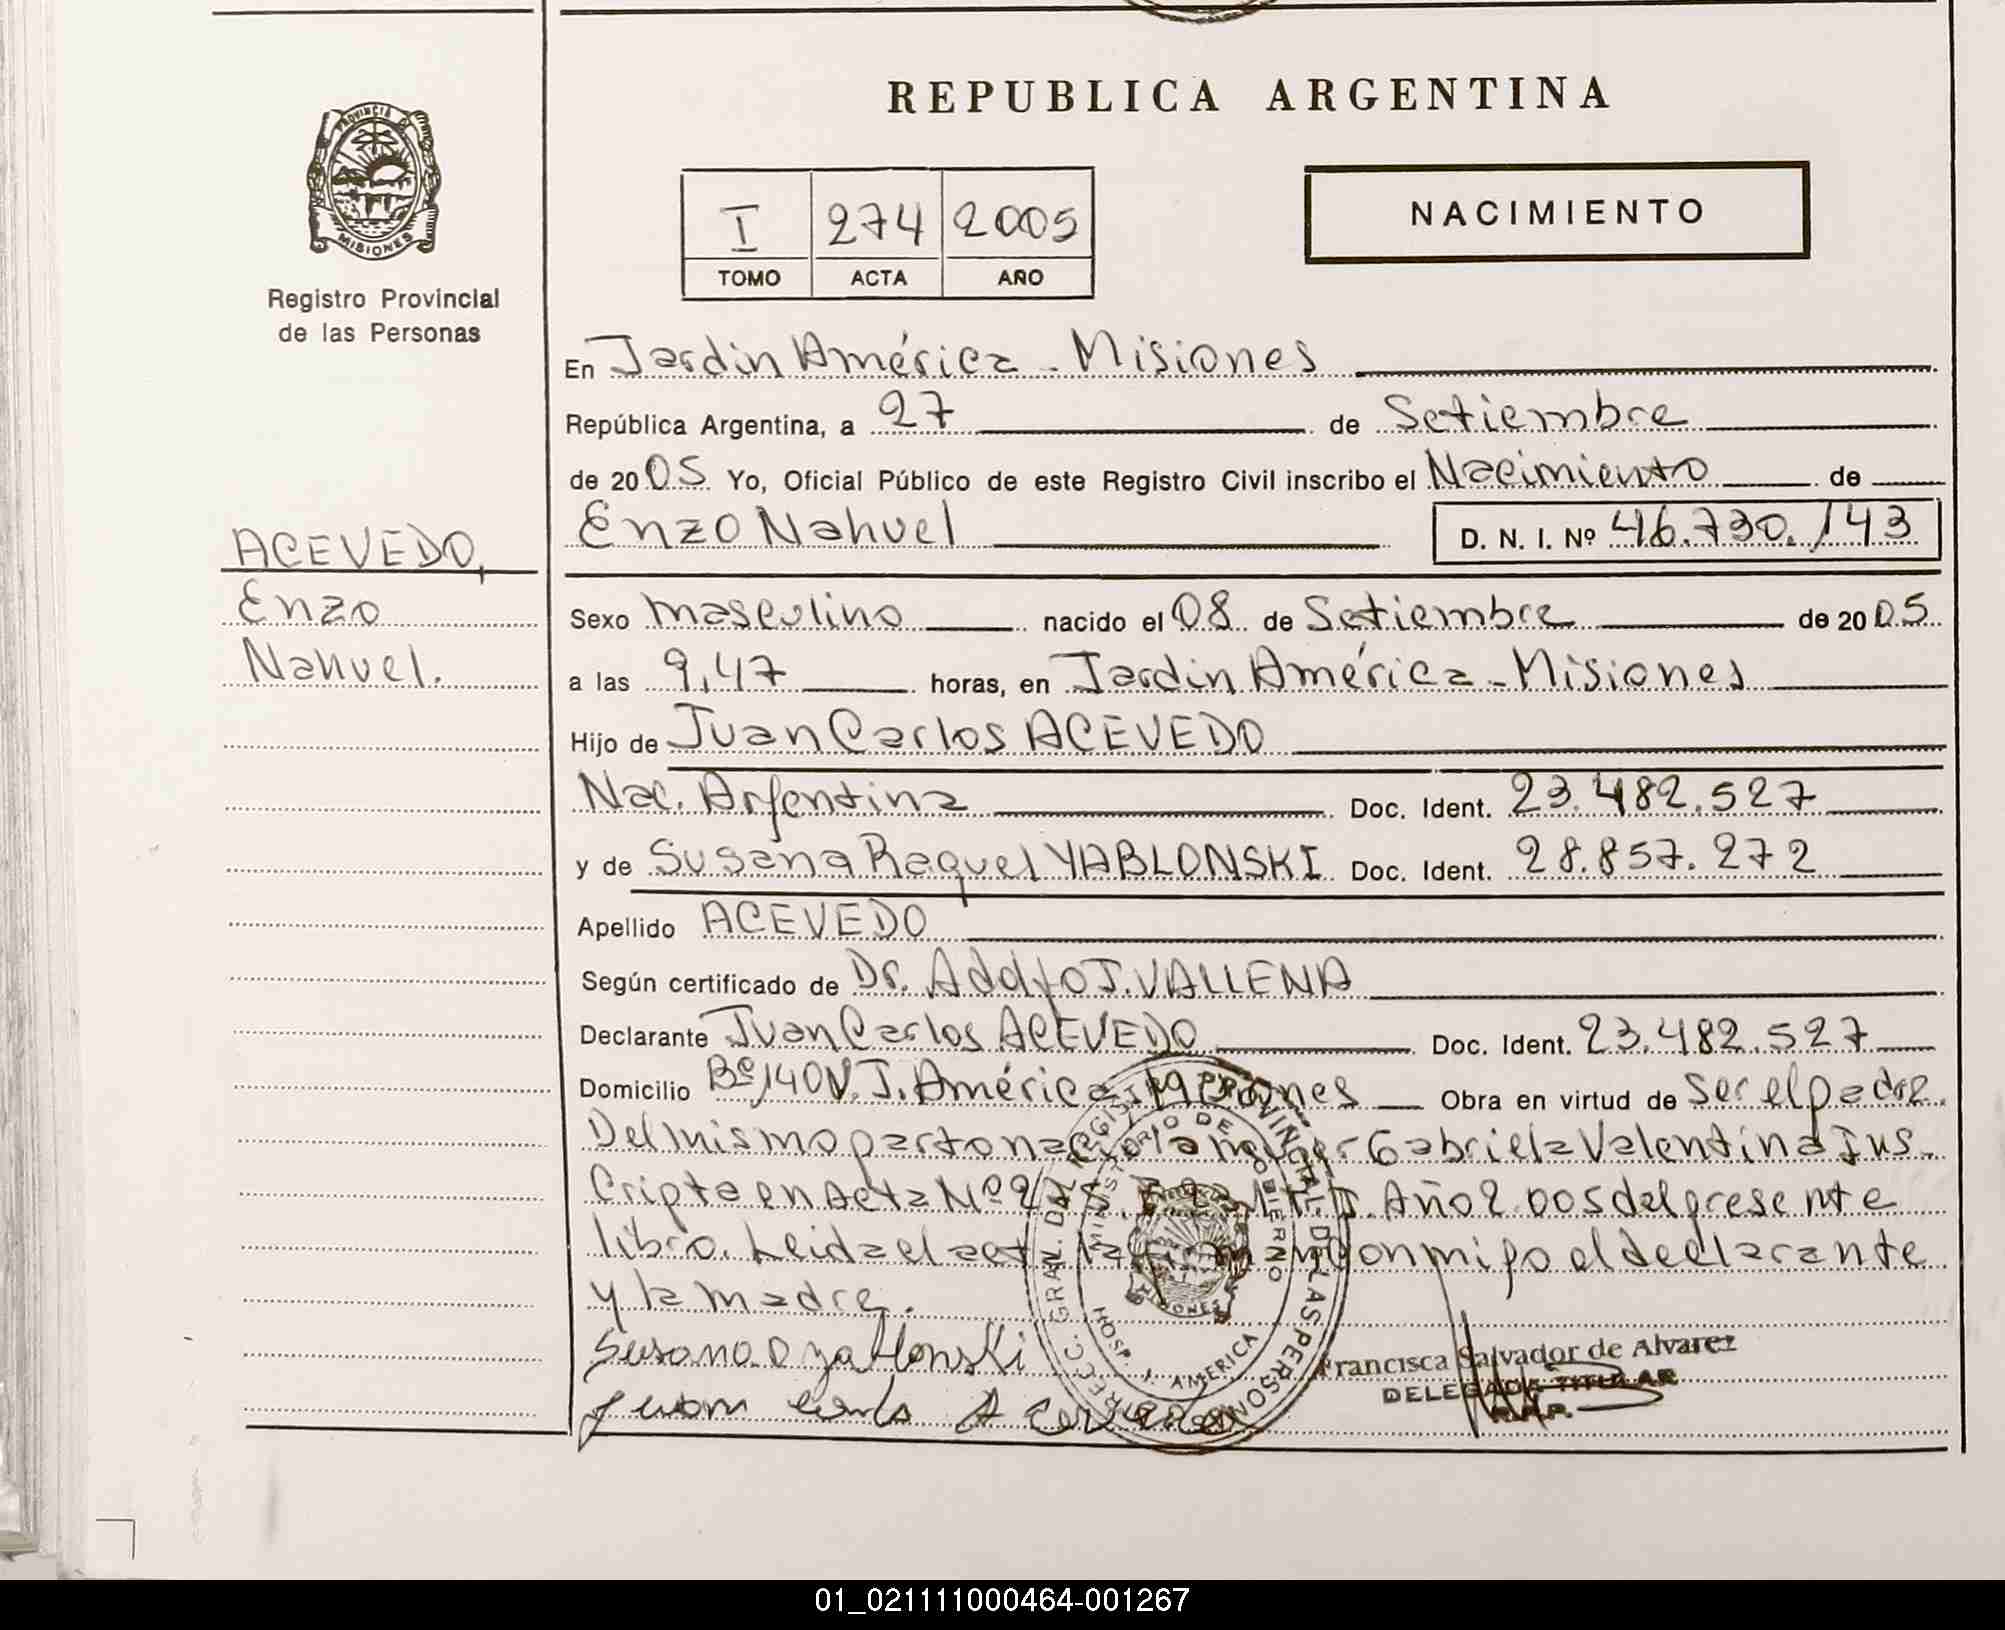 REPUBLICA ARGENTINA
PROVINCIA DE
MISIONES
Registro Provincial
de las Personas
I 274 2005
TOMO ACTA AÑO
NACIMIENTO
En Jardin América - Misiones
República Argentina, a 27 de Setiembre
de 2005 Yo, Oficial Público de este Registro Civil inscribo el Nacimiento de
Enzo Nahuel D. N. I. Nº 46.730.143
ACEVEDO,
Enzo
Nahuel.
Sexo masculino nacido el 08 de Setiembre de 2005
a las 9,47 horas, en Jardin América - Misiones
Hijo de Juan Carlos ACEVEDO
Nac. Argentina Doc. Ident. 23.482.527
y de Susana Raquel YABLONSKI Doc. Ident. 28.857.272
Apellido ACEVEDO
Según certificado de Dr. Adolfo J. VALLENA
Declarante Juan Carlos ACEVEDO Doc. Ident. 23.482.527
Domicilio Bº 140 V. J. América Misiones Obra en virtud de ser el padre.
Del mismo parto nació la mujer Gabriela Valentina Ins-
cripta en Acta Nº Año 2.005 del presente
libro. Leida el acta la firman conmigo el declarante
y la madre.
Susana R yablonski
Juan Carlos Acevedo
DIRECC. GRAL. DEL REGISTRO PROVINCIAL DE LAS PERSONAS
MINISTERIO DE GOBIERNO
MISIONES
HOSP. J. AMERICA
Francisca Salvador de Alvarez
DELEGADA TITULAR
R.P.P.
01_021111000464-001267